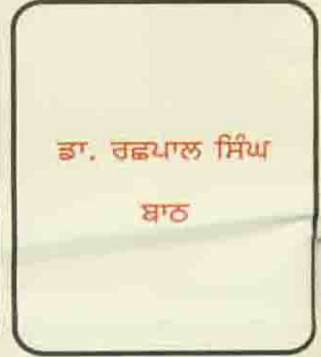 ਡਾ. ਰਛਪਾਲ ਸਿੰਘ
ਬਾਠ